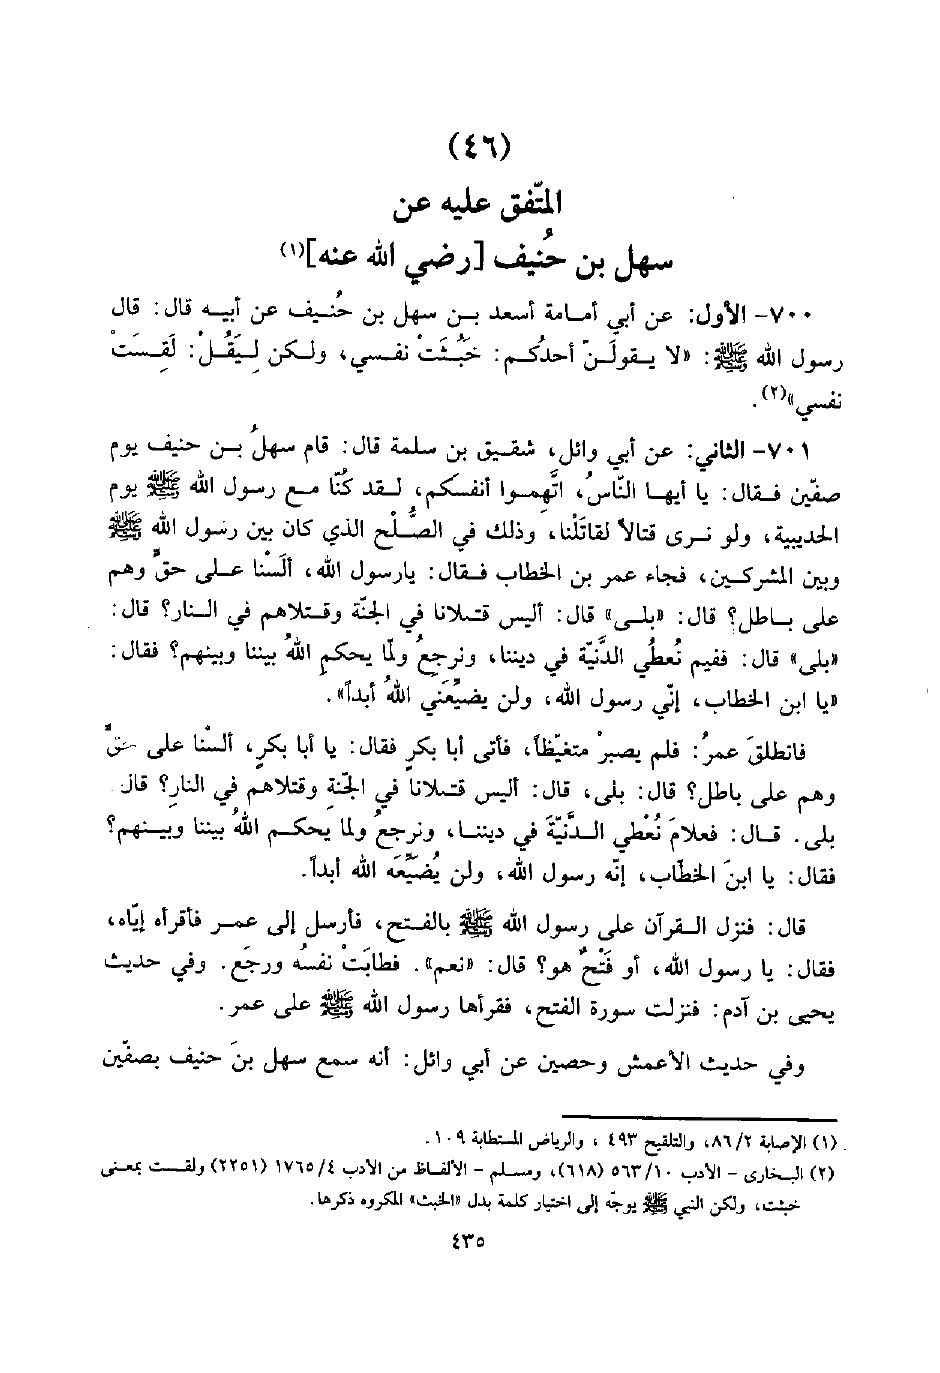 (٤٦)
المتّفق عليه عن
سهل بن حُنيف [رضي الله عنه](١)
٧٠٠- الأول: عن أبي أمامة أسعد بن سهل بن حُنيف عن أبيه قال: قال
رسول الله ﷺ: «لا يقولَنّ أحدُكم: خَبُثَتْ نفسي، ولكن لِيَقُلْ: لَقِسَتْ
نفسي»(٢).
٧٠١- الثاني: عن أبي وائل، شقيق بن سلمة قال: قام سهلُ بن حنيف يوم
صفّين فقال: يا أيها النّاسُ، اتَّهِموا أنفسكم، لقد كنّا مع رسول الله ﷺ يوم
الحديبية، ولو نرى قتالاً لقاتَلْنا، وذلك في الصُّلْح الذي كان بين رسول الله ﷺ
وبين المشركين، فجاء عمر بن الخطاب فقال: يارسول الله، ألَسْنا على حقٍّ وهم
على باطل؟ قال: «بلى» قال: أليس قتلانا في الجنّة وقتلاهم في النار؟ قال:
«بلى» قال: ففيم نُعطي الدَّنيّة في ديننا، ونرجعُ ولمّا يحكمِ اللهُ بيننا وبينهم؟ فقال:
«يا ابن الخطاب، إنّي رسول الله، ولن يضيِّعَني اللهُ أبداً».
فانطلقَ عمرُ: فلم يصبرْ متغيّظاً، فأتى أبا بكرٍ فقال: يا أبا بكرٍ، ألسْنا على حقٍّ
وهم على باطل؟ قال: بلى، قال: أليس قتلانا في الجنّةِ وقتلاهم في النارِ؟ قال:
بلى. قال: فعلامَ نُعْطي الدَّنيّةَ في ديننا، ونرجعُ ولما يحكم اللهُ بيننا وبينهم؟
فقال: يا ابنَ الخطّاب، إنّه رسول الله، ولن يُضَيِّعَه الله أبداً.
قال: فنزل القرآن على رسول الله ﷺ بالفتح، فأرسل إلى عمر فأقرأه إيّاه،
فقال: يا رسول الله، أو فَتْحٌ هو؟ قال: «نعم». فطابَتْ نفسُه ورجَع. وفي حديث
يحيى بن آدم: فنزلت سورة الفتح، فقرأها رسول الله ﷺ على عمر.
وفي حديث الأعمش وحصين عن أبي وائل: أنه سمع سهل بنَ حنيف بصفّين
(١) الإصابة ٨٦/٢، والتلقيح ٤٩٣، والرياض المستطابة ١٠٩.
(٢) البخارى - الأدب ٥٦٣/١٠ (٦١٨)، ومسلم - الألفاظ من الأدب ١٧٦٥/٤ (٢٢٥١) ولقست بمعنى
خبثت، ولكن النبي ﷺ يوجّه إلى اختيار كلمة بدل «الخبث» المكروه ذكرها.
٤٣٥